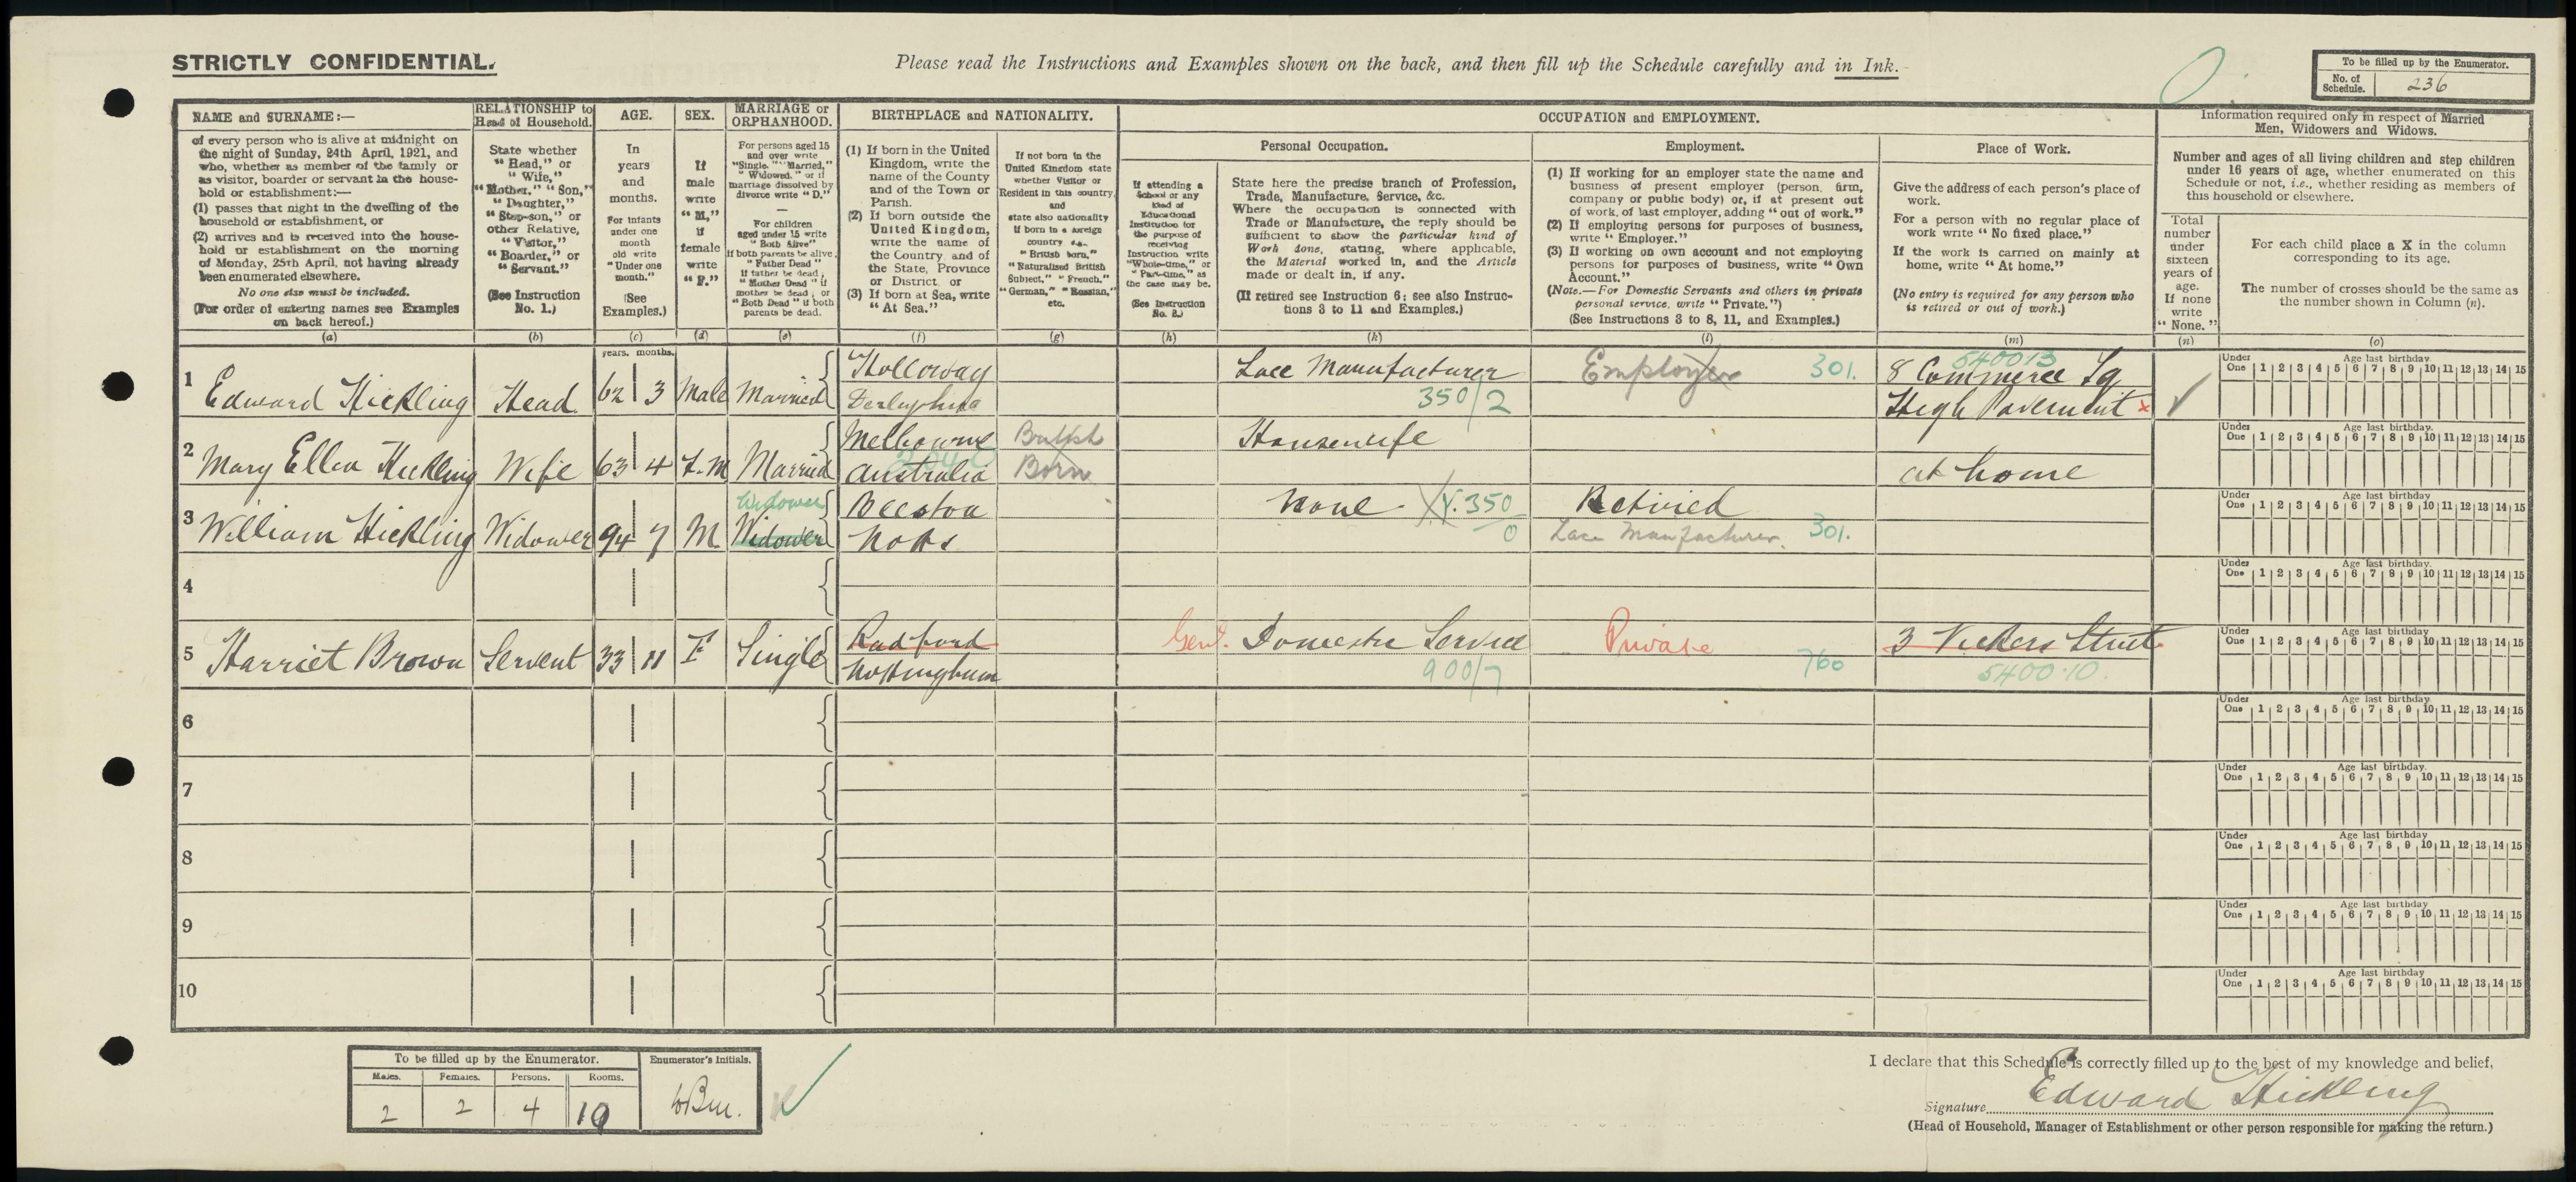 STRICTLY CONFIDENTIAL.
Please read the Instructions and Examples shown on the back, and then fill up the Schedule carefully and in Ink.
To be filled up by the Enumerator.
No. of Schedule. 236
NAME and SURNAME:—
of every person who is alive at midnight on
the night of Sunday, 24th April, 1921, and
who, whether as member of the family or
as visitor, boarder or servant in the house-
hold or establishment:—
(1) passes that night in the dwelling of the
household or establishment, or
(2) arrives and is received into the house-
hold or establishment on the morning
of Monday, 25th April, not having already
been enumerated elsewhere.
No one else must be included.
(For order of entering names see Examples
on back hereof.)
(a)
RELATIONSHIP to
Head of Household.
State whether
"Head," or
"Wife,"
"Mother," "Son,"
"Daughter,"
"Step-son," or
other Relative,
"Visitor,"
"Boarder," or
"Servant."
(See Instruction
No. 1.)
(b)
AGE.
In
years
and
months.
For infants
under one
month
old write
"Under one
month."
(See
Examples.)
(c)
years. months.
SEX.
If
male
write
"M,"
if
female
write
"F."
(d)
MARRIAGE or
ORPHANHOOD.
For persons aged 15
and over write
"Single," "Married,"
"Widowed," or if
marriage dissolved by
divorce write "D."
—
For children
aged under 15 write
"Both Alive"
if both parents be alive,
"Father Dead"
if father be dead,
"Mother Dead" if
mother be dead, or
"Both Dead" if both
parents be dead.
(e)
BIRTHPLACE and NATIONALITY.
(1) If born in the United
Kingdom, write the
name of the County
and of the Town or
Parish.
(2) If born outside the
United Kingdom,
write the name of
the Country and of
the State, Province
or District, or
(3) If born at Sea, write
"At Sea."
(f)
If not born in the
United Kingdom state
whether Visitor or
Resident in this country,
and
state also nationality
if born in a foreign
country e.g.,
"British born,"
"Naturalised British
Subject," "French,"
"German," "Russian,"
etc.
(g)
OCCUPATION and EMPLOYMENT.
If attending a
School or any
kind of
Educational
Institution for
the purpose of
receiving
Instruction write
"Whole-time," or
"Part-time," as
the case may be.
(See Instruction
No. 2.)
(h)
Personal Occupation.
State here the precise branch of Profession,
Trade, Manufacture, Service, &c.
Where the occupation is connected with
Trade or Manufacture, the reply should be
sufficient to show the particular kind of
Work done, stating, where applicable,
the Material worked in, and the Article
made or dealt in, if any.
(If retired see Instruction 6; see also Instruc-
tions 3 to 11 and Examples.)
(k)
Employment.
(1) If working for an employer state the name and
business of present employer (person, firm,
company or public body) or, if at present out
of work, of last employer, adding "out of work."
(2) If employing persons for purposes of business,
write "Employer."
(3) If working on own account and not employing
persons for purposes of business, write "Own
Account."
(Note.—For Domestic Servants and others in private
personal service, write "Private.")
(See Instructions 3 to 8, 11, and Examples.)
(l)
Place of Work.
Give the address of each person's place of
work.
For a person with no regular place of
work write "No fixed place."
If the work is carried on mainly at
home, write "At home."
(No entry is required for any person who
is retired or out of work.)
(m)
Information required only in respect of Married
Men, Widowers and Widows.
Number and ages of all living children and step children
under 16 years of age, whether enumerated on this
Schedule or not, i.e., whether residing as members of
this household or elsewhere.
Total
number
under
sixteen
years of
age.
If none
write
"None."
(n)
For each child place a X in the column
corresponding to its age.
The number of crosses should be the same as
the number shown in Column (n).
(o)
1 Edward Hickling Head 62 3 Male Married Holloway Derbyshire Lace Manufacturer 350/2 Employer 301. 8 Commerce Sq 540013 High Pavement x
Under One Age last birthday. 1 2 3 4 5 6 7 8 9 10 11 12 13 14 15
2 Mary Ellen Hickling Wife 63 4 F.M Married Melbourne Australia British Born Housewife at home
Under One Age last birthday. 1 2 3 4 5 6 7 8 9 10 11 12 13 14 15
3 William Hickling Widower 94 7 M Widower Widower Beeston Notts None 350 0 Retired Lace Manufacturer. 301.
Under One Age last birthday. 1 2 3 4 5 6 7 8 9 10 11 12 13 14 15
4
Under One Age last birthday. 1 2 3 4 5 6 7 8 9 10 11 12 13 14 15
5 Harriet Brown Servent 33 11 F Single Radford Nottingham Genl. Domestic Service 900/7 Private 760 3 Vickers Street 5400.10.
Under One Age last birthday. 1 2 3 4 5 6 7 8 9 10 11 12 13 14 15
6
Under One Age last birthday. 1 2 3 4 5 6 7 8 9 10 11 12 13 14 15
7
Under One Age last birthday. 1 2 3 4 5 6 7 8 9 10 11 12 13 14 15
8
Under One Age last birthday 1 2 3 4 5 6 7 8 9 10 11 12 13 14 15
9
Under One Age last birthday 1 2 3 4 5 6 7 8 9 10 11 12 13 14 15
10
Under One Age last birthday 1 2 3 4 5 6 7 8 9 10 11 12 13 14 15
To be filled up by the Enumerator. Enumerator's Initials.
Males. Females. Persons. Rooms.
2 2 4 10
I declare that this Schedule is correctly filled up to the best of my knowledge and belief,
Signature Edward Hickling
(Head of Household, Manager of Establishment or other person responsible for making the return.)